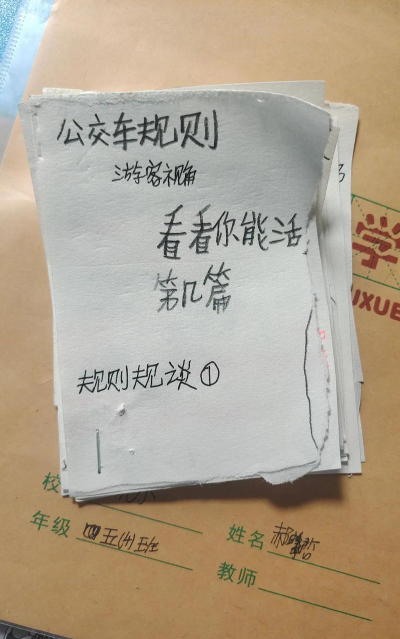 公交车规则
游客视角
看看你能活
第几篇
规则规谈①
学
UXUE
校
年级 五(4)班
姓名 郝
教师